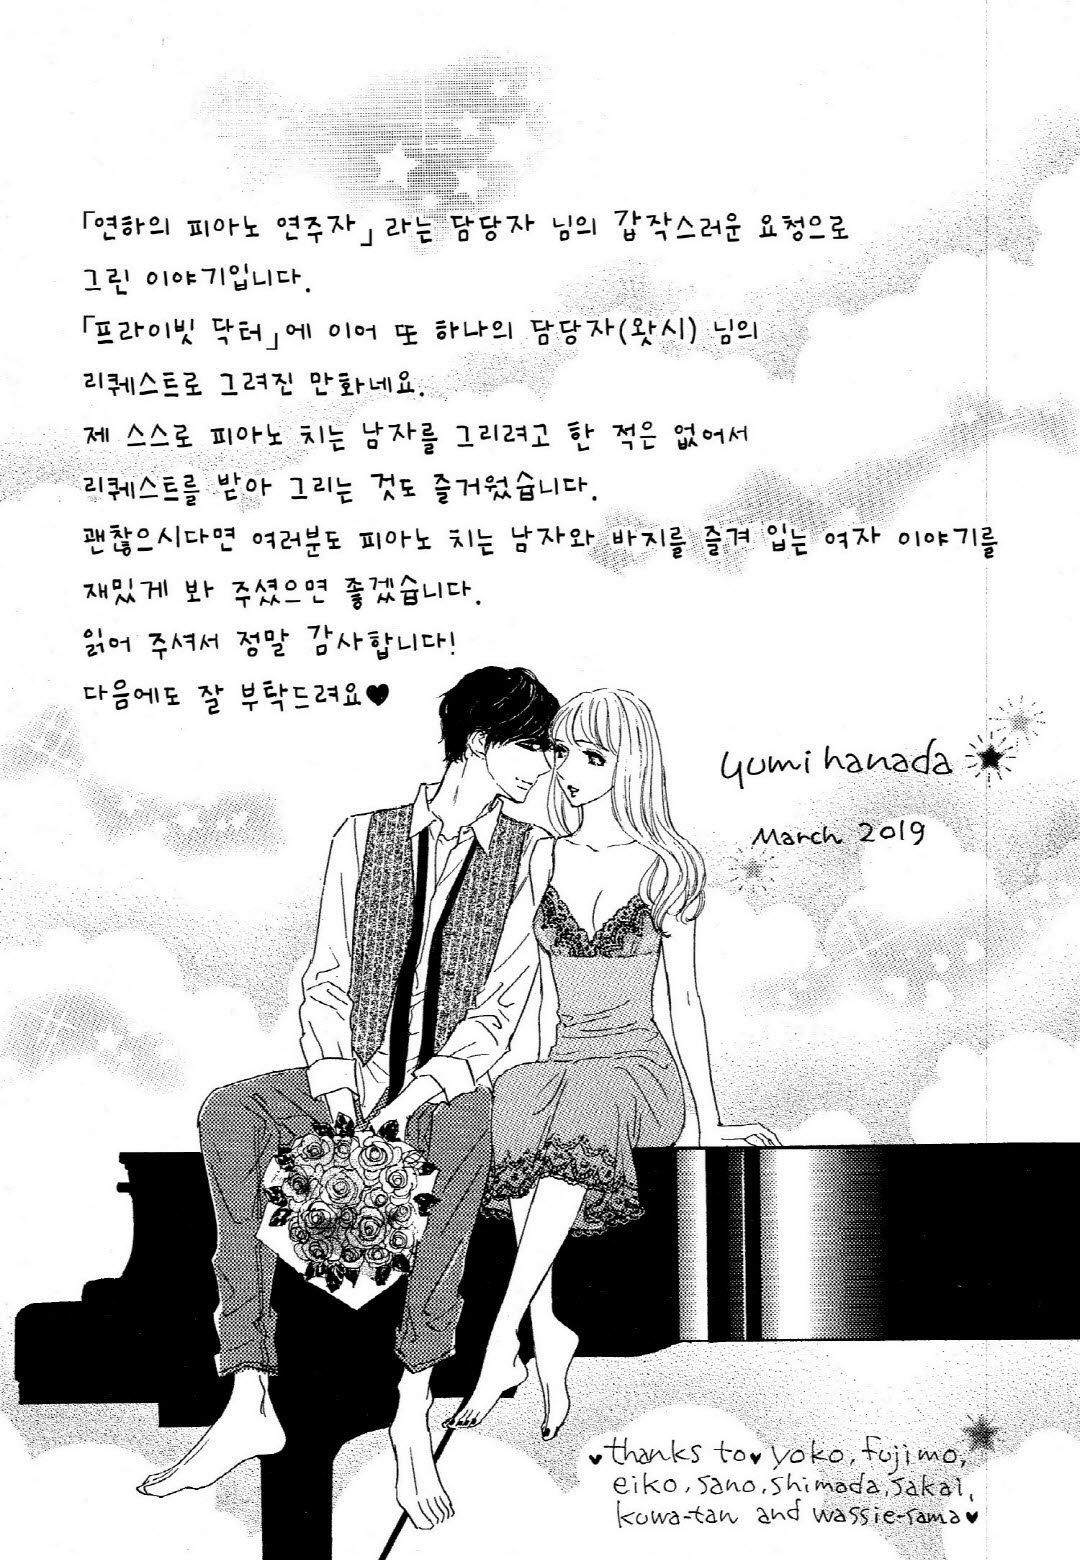 「연하의 피아노 연주자」라는 담당자 님의 갑작스러운 요청으로
그린 이야기입니다.
「프라이빗 닥터」에 이어 또 하나의 담당자(왓시) 님의
리퀘스트로 그려진 만화네요.
제 스스로 피아노 치는 남자를 그리려고 한 적은 없어서
리퀘스트를 받아 그리는 것도 즐거웠습니다.
괜찮으시다면 여러분도 피아노 치는 남자와 바지를 즐겨 입는 여자 이야기를
재밌게 봐 주셨으면 좋겠습니다.
읽어 주셔서 정말 감사합니다!
다음에도 잘 부탁드려요♥
yumi hanada
March 2019
♥thanks to♥ yoko, fujimo,
eiko, sano, shimada, sakai,
kuwa-tan and wassie-sama♥